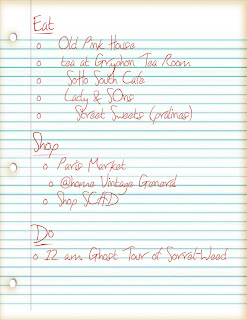 Eat
o Old Pink House
o tea at Gryphon Tea Room
o Soho South Cafe
o Lady & SOns
o Street Sweets (pralines)
Shop
o Paris Market
o @home Vintage General
o Shop SCAD
Do
o 12 am Ghost Tour of Sorrel-Weed